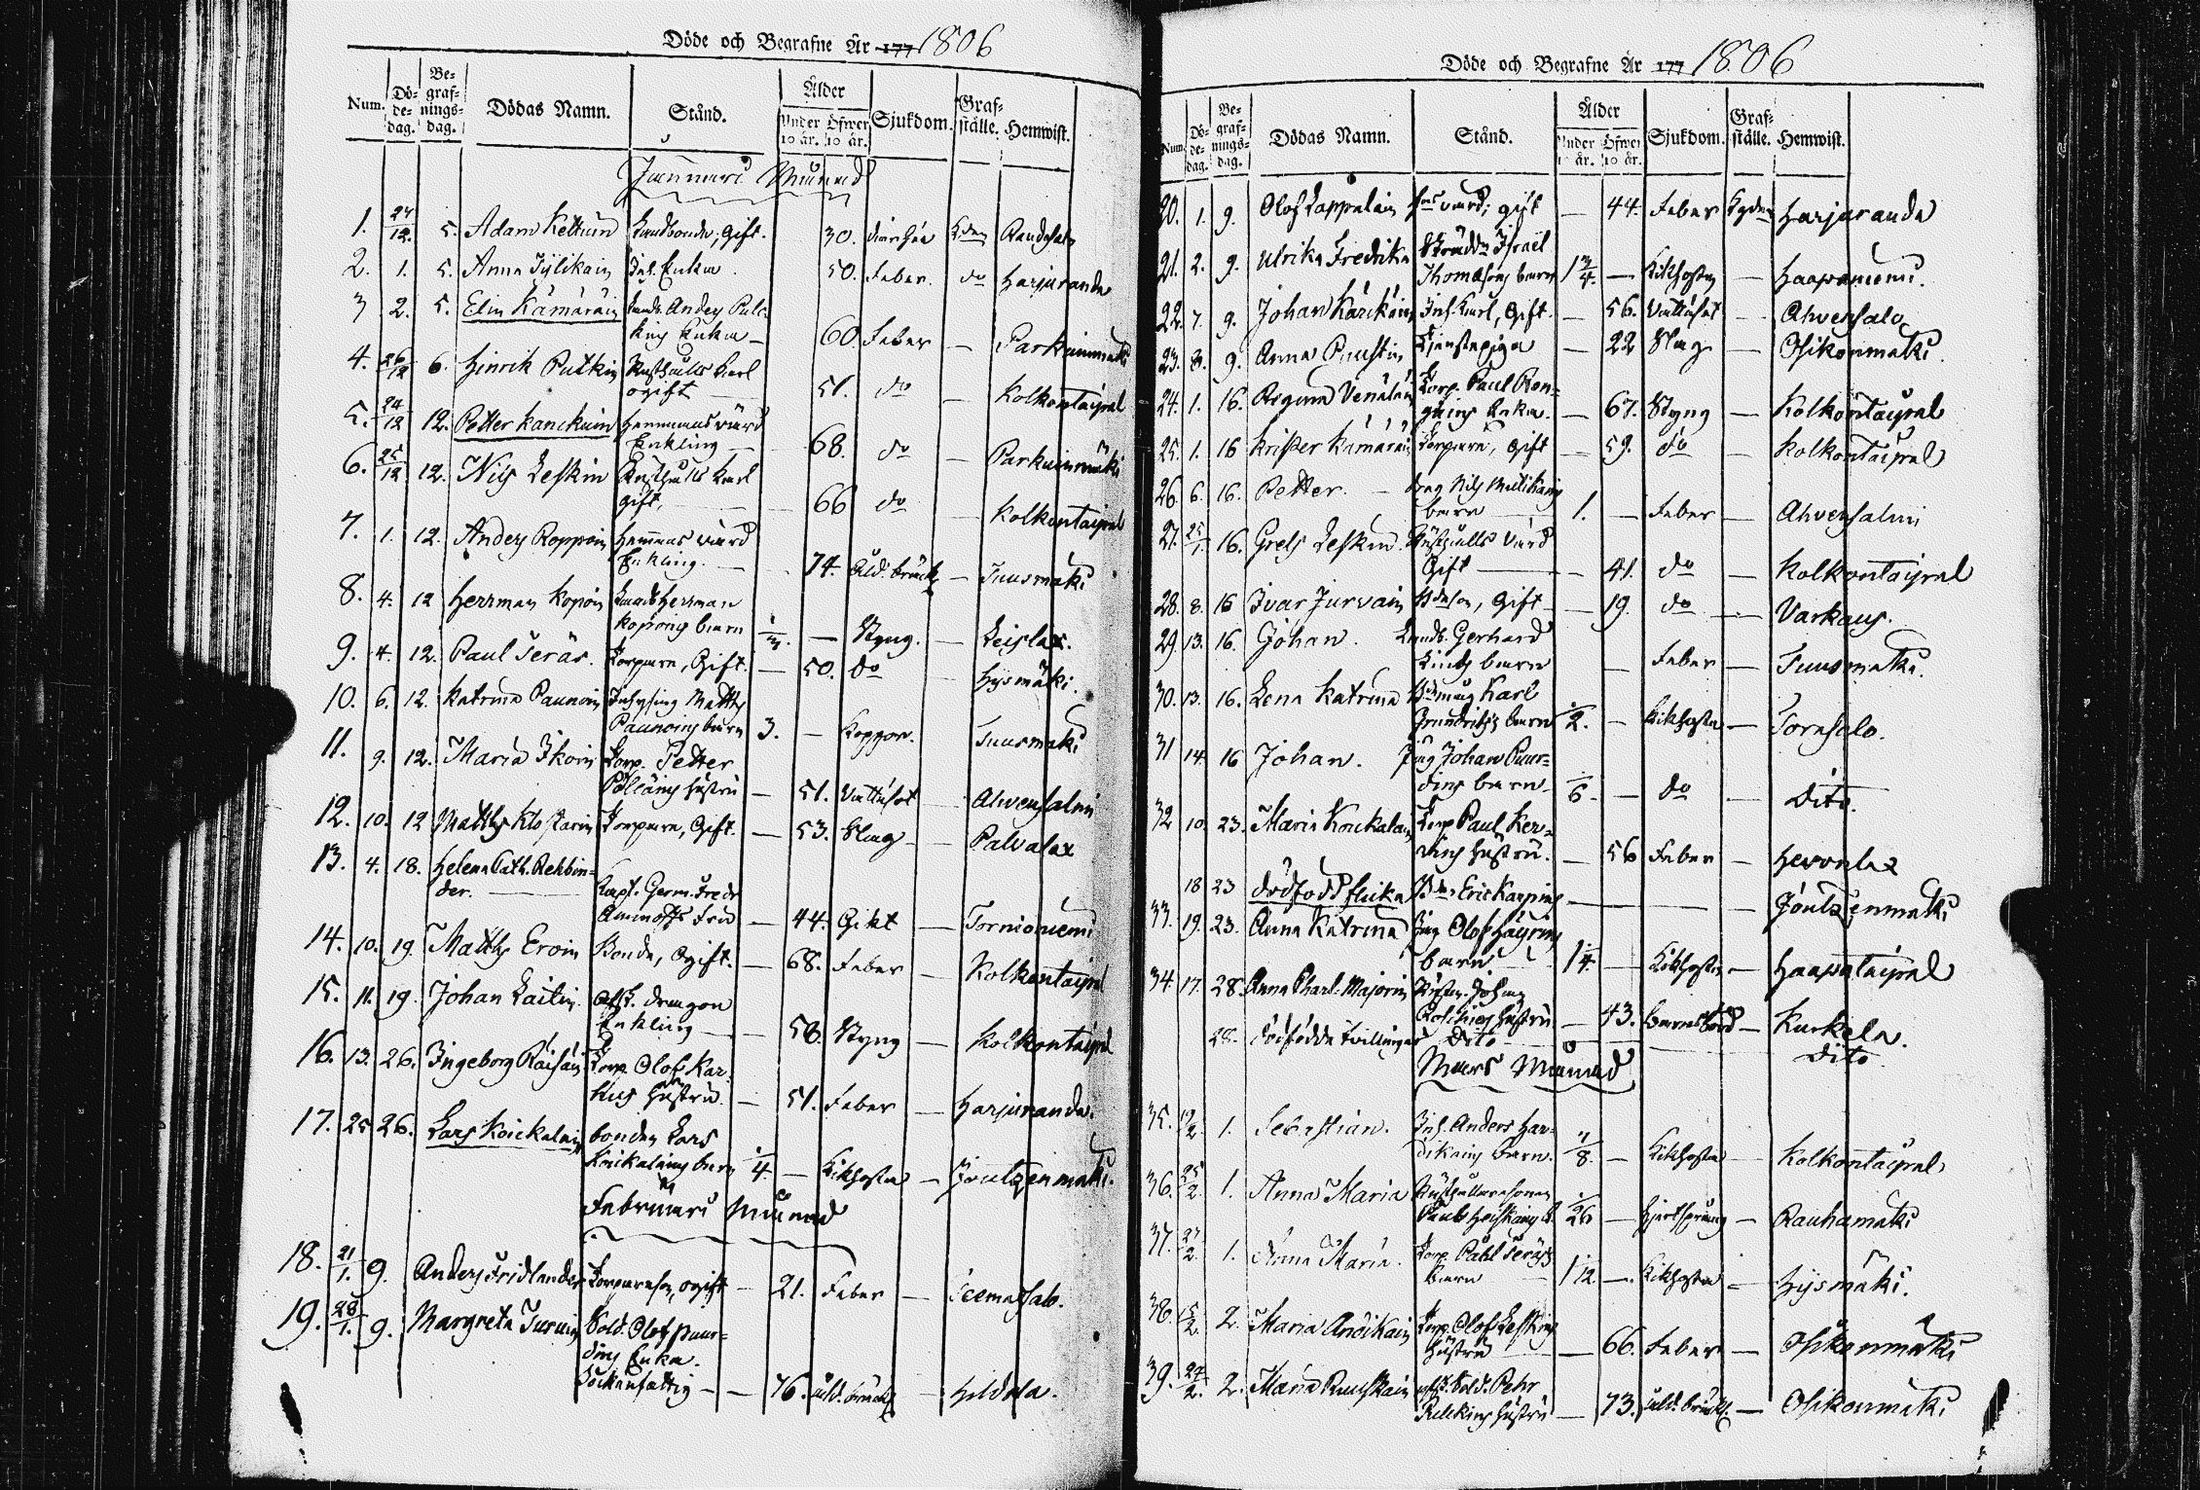 Döde och Begrafne År 177 1806
Num. Dö-de-dag. Be-graf-nings-dag. Dödas Namn. Stånd. Ålder Under 10 år. Öfwer 10 år. Sjukdom. Graf-ställe. Hemwist.
Januari Månad
1. 24/12. 5. Adam Kettuin Landbonde, Gift. 30. diarrhée Randasalo
2. 1. 5. Anna Inh. Enka 50. Feber. do Harjuranda
3 2. 5. Elin Kämäräin Landb. Anders
Enka — 60. Feber — Parkuinmäki
4. 26/12 6. Hinrik Putkin Rusthålls karl
ogift 51. do — Kolkontaipal
5. 24/12 12. Petter Kanckuin Hemmansvärd
Enkling — 68. do — Parkuinmäki
6. 25/12 12. Nils Leskin Rusthålls karl
gift. — 66 do — Kolkontaipal
7. 1. 12. Anders Roppoin Hemmans värd
Enkling. — 74. Åld. bräckl — Tuusmäki
8. 4. 12 Herrman Kopoin Landb Herrman
Kopoins barn — Styng. — Leislax.
9. 4. 12. Paul Teräs. Torpare, Gift. — 50. do Hysmäki.
10. 6. 12. Katrina Paunoin Inhysing Matths
Paunoins barn 3. — Koppor. Tuusmäki
11. 9. 12. Maria Ikoin Torp. Petter
Pöläins hustru — 51. Vattusot — Ahvensalmi
12. 10. 12 Matths Klostarin Torpare, Gift. — 53. Slag — Palvalax
13. 4. 18. Helena Cath. Rehbin=
der. Capt. Germ. Fredr
Aminoffs Fru — 44. Gikt — Tornioniemi
14. 10. 19. Matths Eroin Bonde, Ogift. — 68. Feber — Kolkontaipal
15. 11. 19. Johan Laitin. Afsk. dragon
Enkling — 58. Styng — Kolkontaipal
16. 13. 26. Ingeborg Räisäin Torp. Olof Kar-
hus hustru. — 51. Feber — Harjuranda.
17. 25 26. Lars Koickalain bonden Lars
Koikalains barn 1/4. — Kikhosta — Joutzenmäki.
Februari Månad
18. 21/1. 9. Anders Fridlander Torpareson, ogift — 21. Feber — Teemasalo.
19. 28/1. 9. Margreta Turuin Sold. Olof Puur=
dins Enka.
Sockenfattig — 76. åld. bräckl — Heldola.
Döde och Begrafne År 177 1806
Num. Dö-de-dag. Be-graf-nings-dag. Dödas Namn. Stånd. Ålder Under 10 år. Öfwer 10 år. Sjukdom. Graf-ställe. Hemwist.
20. 1. 9. Olof Lappalain värd, gift — 44. Feber Harjuranda
21. 2. 9. Ulrika Fredrika Skrädd. Israël
Thomæsons barn 1 3/4. — Kikhosta — Haapaniemi.
22. 7. 9. Johan Käricköin Inh. Karl, Gift. — 56. Vattusot — Ahvensalo
23. 8. 9. Anna Puustin Tjenstepiga — 22 Slag — Osikonmäki.
24. 1. 16. Regina Venäläin Torp. Paul Ron-
gains Enka. — 67. Styng — Kolkontaipal
25. 1. 16 Krister Kämäräin Torpare, Gift — 59. do — Kolkontaipal
26. 6. 16. Petter. — drag Nils Mulikains
barn 1. — Feber — Ahvensalmi
27. 25/1. 16. Grels Leskin Rusthålls värd
Gift — 41. do — Kolkontaipal
28. 8. 16 Ivar Jurvain Bdeson, Gift — 19. do — Varkaus.
29 13. 16. Johan. Landb. Gerhard
Linds barn — Feber — Tuusmäki.
30. 13. 16. Lena Katrina Karl
barn 1/2. — Kikhosta — Tornsalo.
31 14. 16 Johan. Johan Puur=
dins barn 1/6. — do — Dito.
32 10. 23. Maria Koukalain Torp Paul Ker=
vins hustru. — 56 Feber — Hevonlax
18 23 dödfödd flicka Bdn Eric Karpins — Joutzenmäki
33. 19. 23. Anna Katrina Olof Häyrins
barn 1/4. — Kikhosta — Haapataipal
34. 17. 28. Anna Charl. Majorin Johan
hustru — 43. barnsbörd — Kurkela.
28. dödfödda Tvillingar Dito — Dito
Mars Månad
35. 19/2. 1. Sebastian. Inh. Anders Har-
dikains barn. — Kikhosta — Kolkontaipal
36. 25/2. 1. Anna Maria Rusthållaresonen
Pauls Heiskains b. 1/26 — Hjertsprång — Rauhamäki
37. 27/2. 1. Anna Maria. Torp. Påhl Teräs
barn 1/12. — Kikhosta — Hysmäki.
38. 15/2. 2. Maria Andikain Torp. Olof Leskins
hustru — 66. Feber — Osikonmäki
39. 24/2. 2. Maria Ruuskain afsk. Sold. Pehr
hustru — 73. åld. bräckl. — Osikonmäki